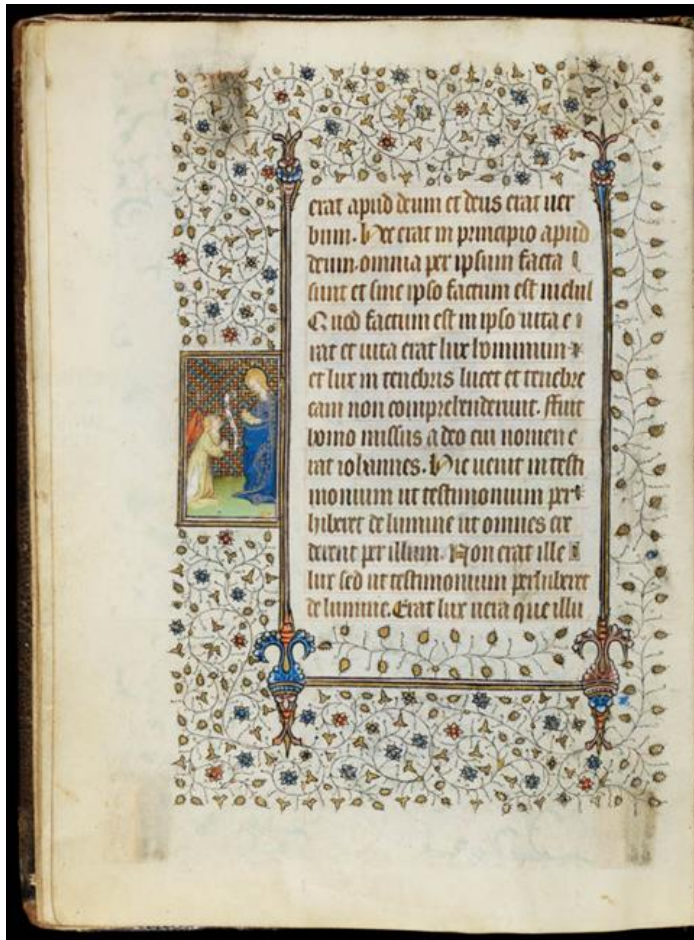 erat apud deum et deus erat uer
bum. Hoc erat in principio apud
deum. omnia per ipsum facta
sunt et sine ipso factum est nichil
Quod factum est in ipso uita e
rat et uita erat lux hominum
et lux in tenebris lucet et tenebre
eam non comprehenderunt. ffuit
homo missus a deo cui nomen e
rat iohannes. Hic uenit in testi
monium ut testimonium per
hiberet de lumine ut omnes cre
derent per illum. Non erat ille
lux sed ut testimonium perhiberet
de lumine. Erat lux uera que illu